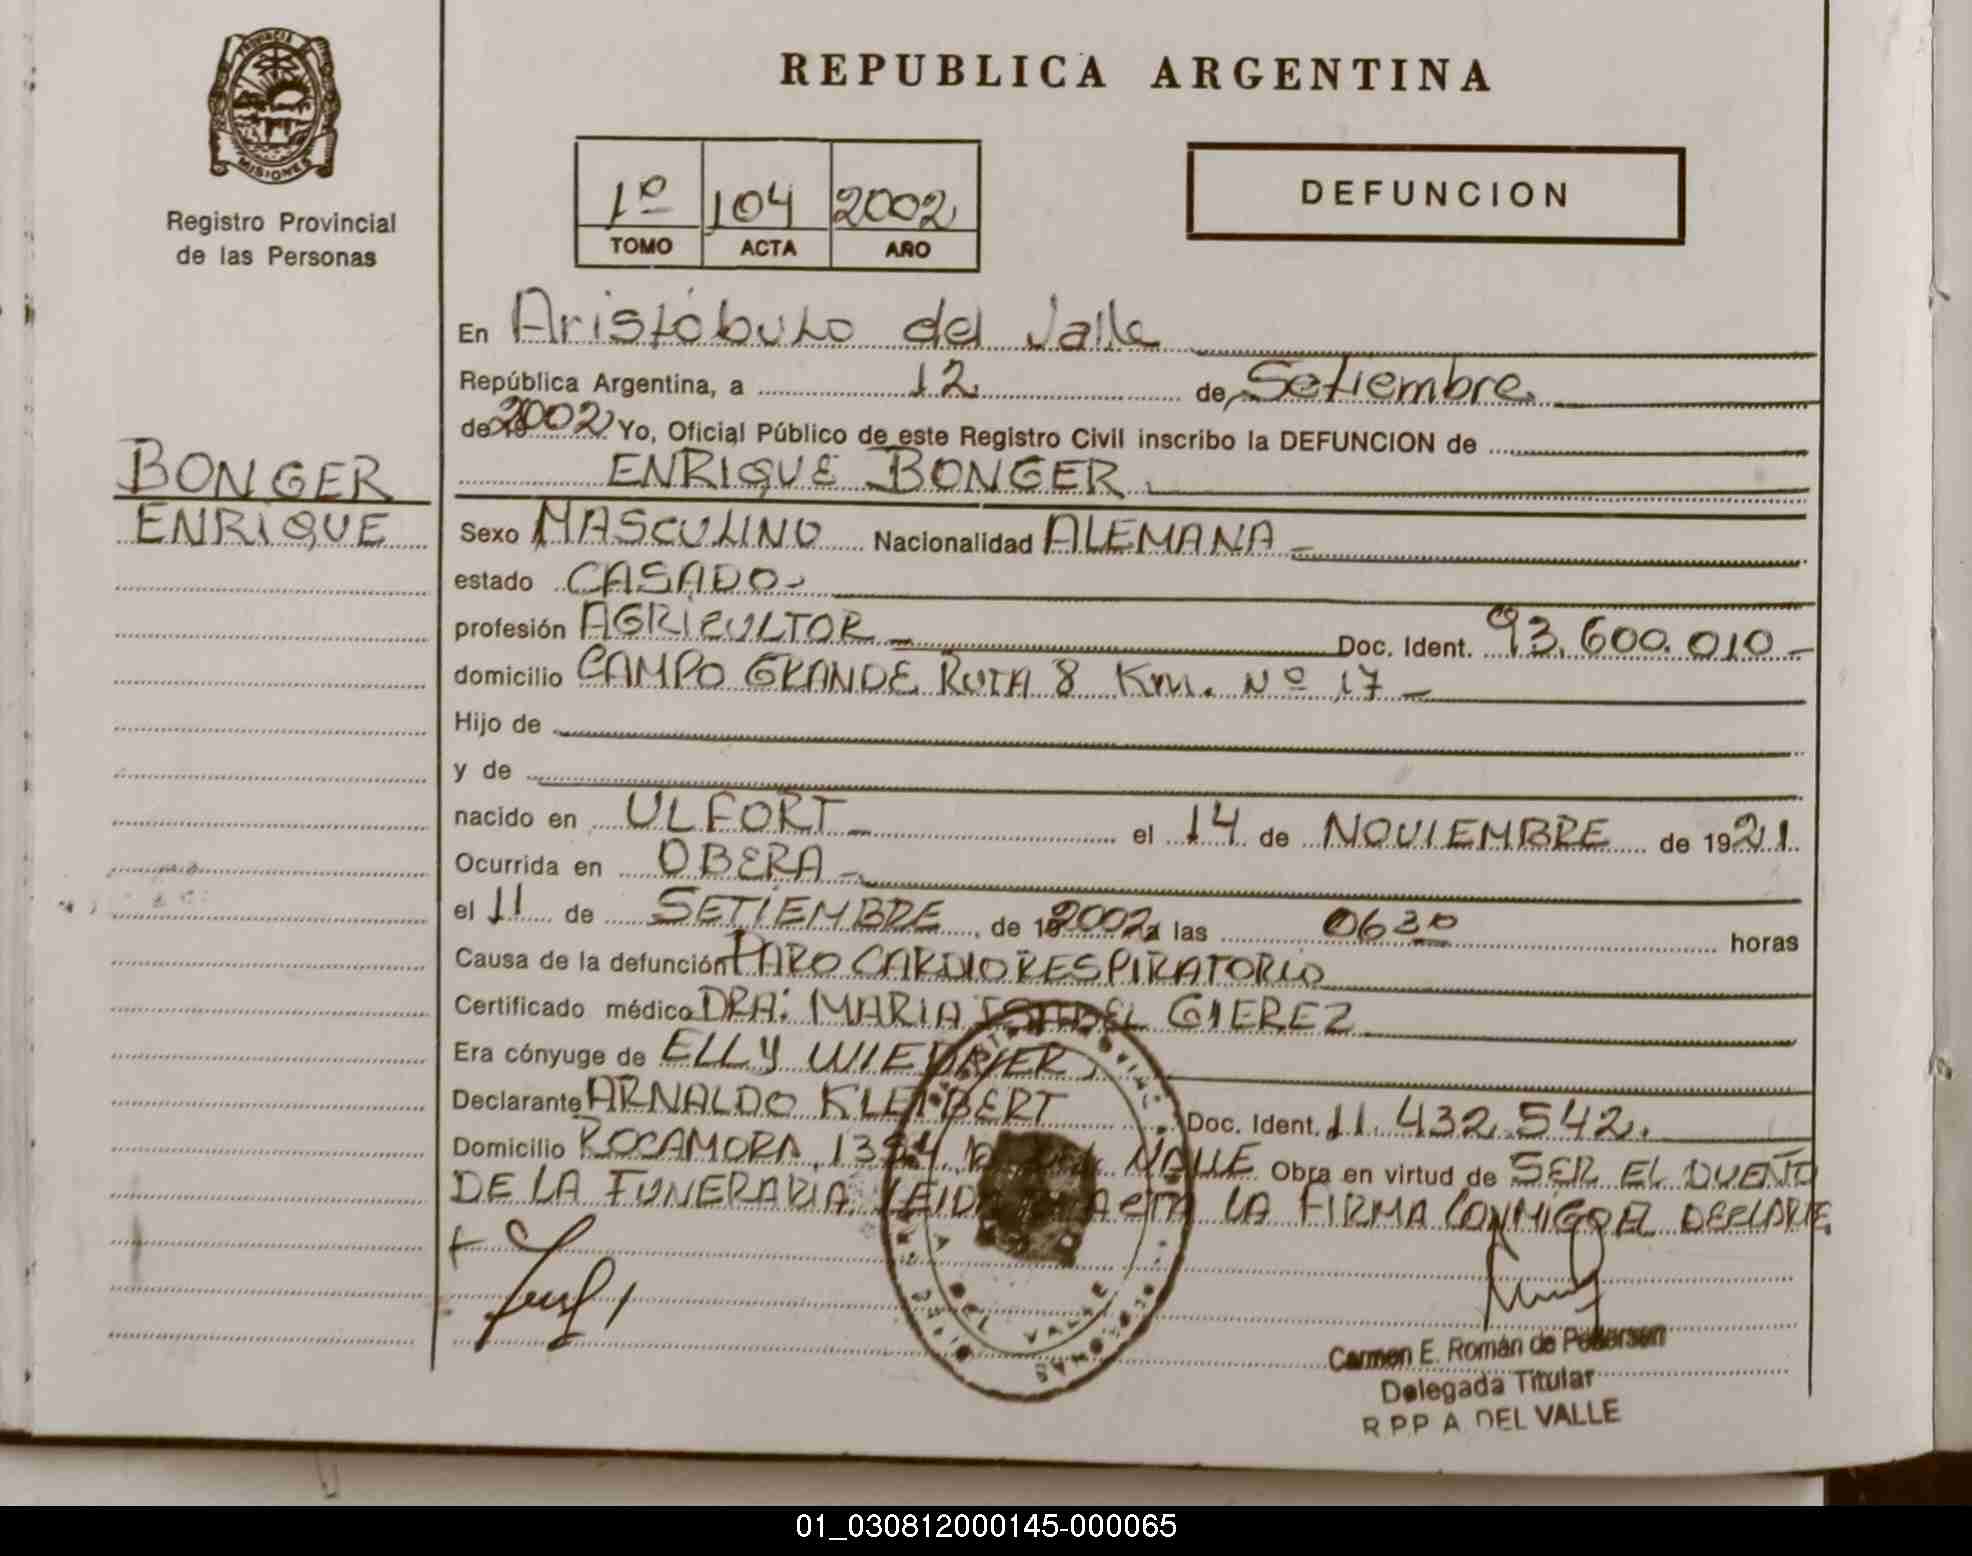 PROVINCIA
MISIONES
Registro Provincial
de las Personas
REPUBLICA ARGENTINA
1º 104 2002
TOMO ACTA AÑO
DEFUNCION
En Aristóbulo del Valle
República Argentina, a 12 de Setiembre
de 2002 Yo, Oficial Público de este Registro Civil inscribo la DEFUNCION de
ENRIQUE BONGER
BONGER
ENRIQUE
Sexo MASCULINO Nacionalidad ALEMANA
estado CASADO
profesión AGRICULTOR Doc. Ident. 93.600.010
domicilio CAMPO GRANDE RUTA 8 Km. Nº 17
Hijo de
y de
nacido en ULFORT el 14 de NOVIEMBRE de 1921
Ocurrida en OBERA
el 11 de SETIEMBRE de 2002 a las 0630 horas
Causa de la defunción PARO CARDIORESPIRATORIO
Certificado médico DRA: MARIA ISABEL GIEREZ
Era cónyuge de ELLY
Declarante ARNALDO Doc. Ident. 11.432.542.
Domicilio ROCAMORA VALLE Obra en virtud de SER EL DUEÑO
DE LA FUNERARIA. ACTA LA FIRMA CONMIGO EL
DEL VALLE
Carmen E. Román de Pedersen
Delegada Titular
R.P.P. A. DEL VALLE
01_030812000145-000065